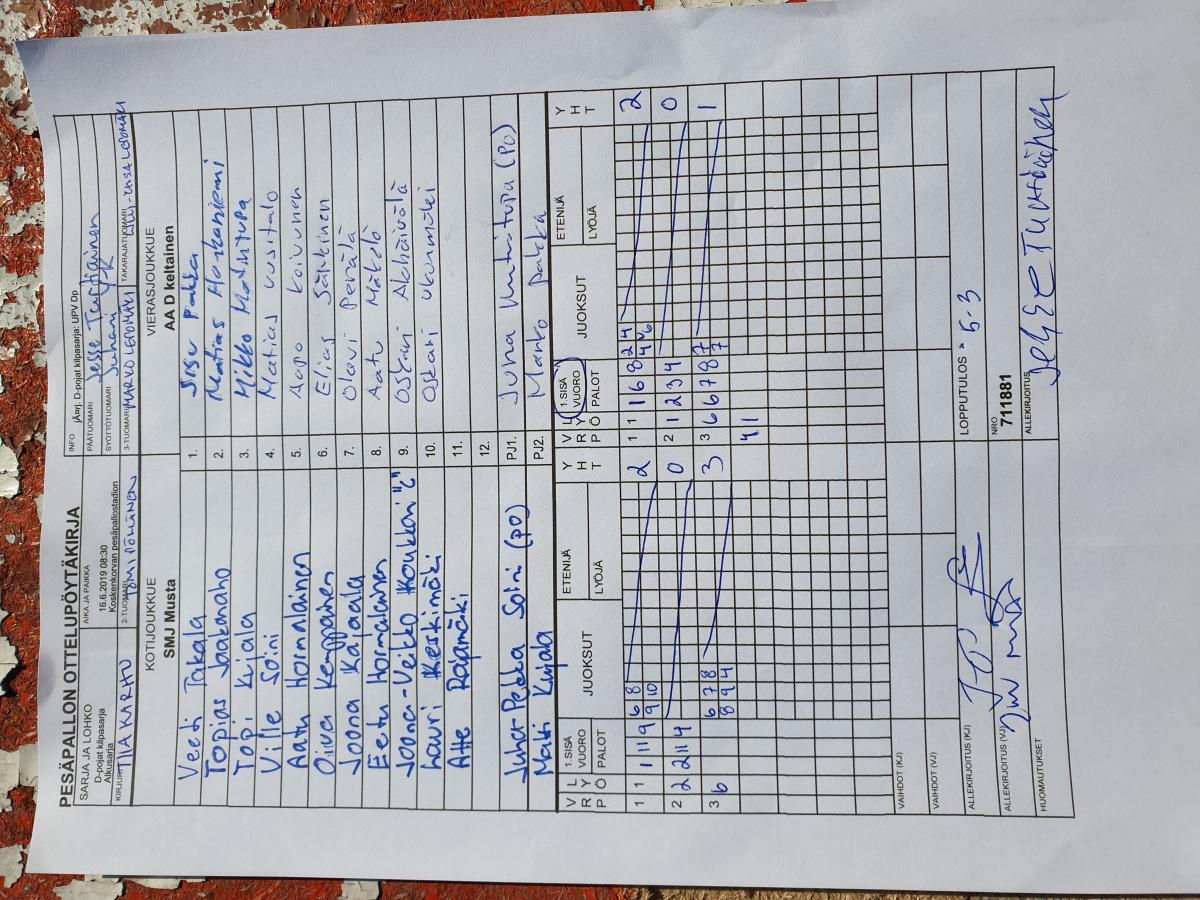 PESÄPALLON OTTELUPÖYTÄKIRJA
SARJA JA LOHKO
D-pojat kilpasarja
Alkusarja
AIKA JA PAIKKA
16.6.2019 08:30
Koskenkorvan pesäpallostadion
INFO jÄarj. D-pojat kilpasarja: UPV Dp
PÄÄTUOMARI Jesse Tuuttiainen
SYÖTTÖTUOMARI Juhani
KIRJURI TIIA KARHU
2-TUOMARI TOMI PÖLLÄNEN
3-TUOMARI MARKO LEPOMÄKI
TAKARAJATUOMARI
KOTIJOUKKUE
SMJ Musta
VIERASJOUKKUE
AA D keltainen
Veeti Takala 1. Sisu Pakka
Topias Jaakonaho 2. Matias Haskoniemi
Topi Kujala 3. Mikko Mathtupa
Ville Soini 4. Matias Uusitalo
Aatu Hormalainen 5. Aapo Koivunen
Oiva Kemppainen 6. Elias
Joona Kajaala 7. Olavi Perälä
Eetu Hormalainen 8. Aatu Mäkelä
Joona-Veikko Koukkari "C" 9. Oskari
Lauri Keskimäki 10. Oskari Ukonmäki
Atte Rajamäki 11.
12.
Juha-Pekka Soini (PO) PJ1. Juha (PO)
Matti Kujala PJ2. Marko Pakka
V R P L Y Ö 1.SISÄ VUORO PALOT JUOKSUT ETENIJÄ LYÖJÄ Y H T V R P L Y Ö 1.SISÄ VUORO PALOT JUOKSUT ETENIJÄ LYÖJÄ Y H T
1 1 1 11 9 6 8 2 1 1 1 6 8 2 4 2
9 10 4 6
2 2 2 11 4 0 2 1 2 3 4 0
3 6 6 7 8 3 3 6 6 7 8 7 1
8 9 4 7
4 1
VAIHDOT (KJ)
VAIHDOT (VJ)
ALLEKIRJOITUS (KJ)
LOPPUTULOS 5-3
ALLEKIRJOITUS (VJ)
NRO
711881
HUOMAUTUKSET
ALLEKIRJOITUS